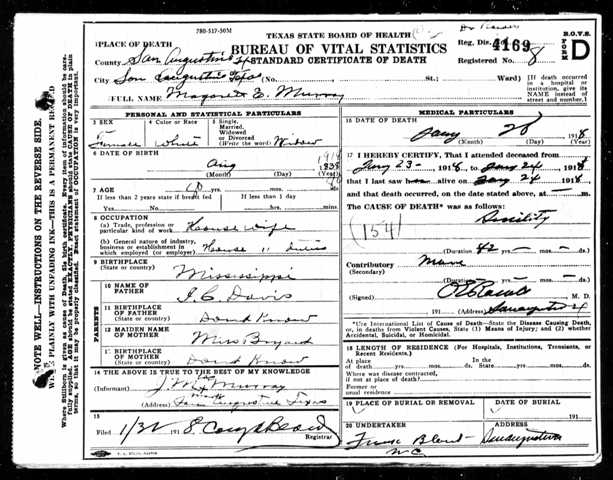 780-517-50M
TEXAS STATE BOARD OF HEALTH
BUREAU OF VITAL STATISTICS
STANDARD CERTIFICATE OF DEATH
Reg. Dis. 4169
Registered No. 8
B.O.V.S.
FORM D
1 PLACE OF DEATH
County San Augustine
City San Augustine Texas No. St.; Ward)
[If death occurred in a hospital or institution, give its NAME instead of street and number.]
2 FULL NAME Magaret E. Murray
PERSONAL AND STATISTICAL PARTICULARS
3 SEX Female
4 Color or Race White
5 Single, Married, Widowed or Divorced (Write the word) Widow
6 DATE OF BIRTH
Aug 1838
(Month) (Day) (Year)
7 AGE
If less than 2 years state if breast fed
If less than 1 day
Yes No hours min.
8 OCCUPATION
(a) Trade, profession or particular kind of work House wife
(b) General nature of industry, business or establishment in which employed (or employer) House " duties
9 BIRTHPLACE
(State or country) Mississippi
PARENTS
10 NAME OF FATHER J. C. Davis
11 BIRTHPLACE OF FATHER
(State or country) Dont Know
12 MAIDEN NAME OF MOTHER Miss
13 BIRTHPLACE OF MOTHER
(State or country) Dont Know
14 THE ABOVE IS TRUE TO THE BEST OF MY KNOWLEDGE
(Informant) J. M. Murray
(Address) San Augustine Texas
15
Filed 1/31 1918
Registrar
MEDICAL PARTICULARS
16 DATE OF DEATH
Jany 26 1918
(Month) (Day) (Year)
17 I HEREBY CERTIFY, That I attended deceased from
Jany 23 1918, to Jany 24 1918
that I last saw alive on Jany 24 1918
and that death occurred, on the date stated above, at m.
The CAUSE OF DEATH* was as follows:
Senility
(154)
(Duration) yrs. mos. ds.
Contributory None
(Secondary)
(Duration) yrs. mos. ds.
(Signed) M. D.
191 (Address) San Augustine
*Use International List of Cause of Death—State the Disease Causing Death, or, in deaths from Violent Causes, State (1) Means of Injury; and (2) whether Accidental, Suicidal, or Homicidal.
18 LENGTH OF RESIDENCE (For Hospitals, Institutions, Transients, or Recent Residents.)
At place of death yrs. mos. ds. In the State yrs. mos. ds.
Where was disease contracted, if not at place of death?
Former or usual residence
19 PLACE OF BURIAL OR REMOVAL
DATE OF BURIAL
191
20 UNDERTAKER
ADDRESS
San Augustine
NOTE WELL—INSTRUCTIONS ON THE REVERSE SIDE.
WRITE PLAINLY WITH UNFADING INK—THIS IS A PERMANENT RECORD